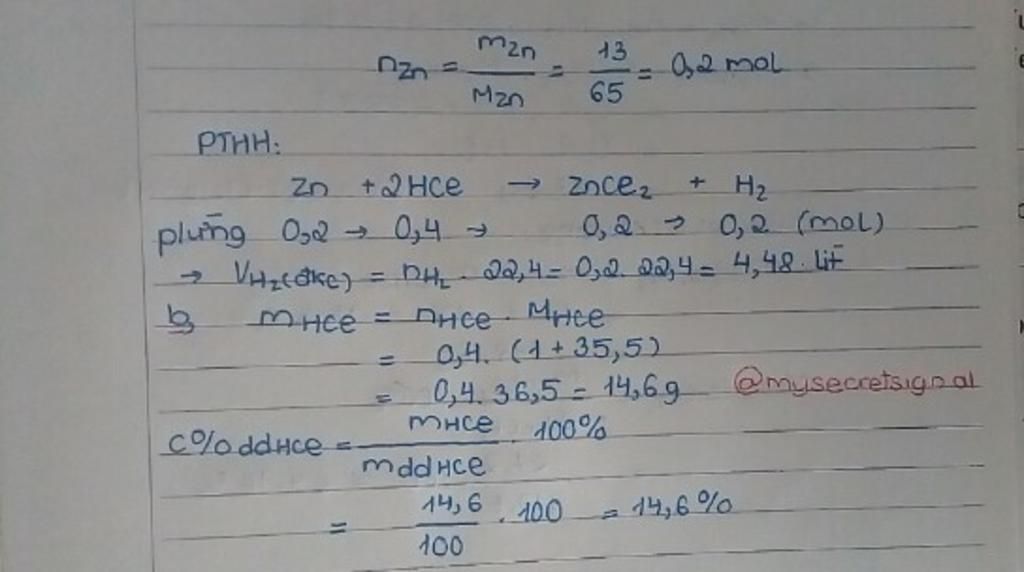 nZn = mZn / MZn = 13 / 65 = 0,2 mol
PTHH:
Zn + 2HCl → ZnCl₂ + H₂
pứng 0,2 → 0,4 → 0,2 → 0,2 (mol)
→ VH₂(đkc) = nH₂ . 22,4 = 0,2. 22,4 = 4,48. lít
b, mHCl = nHCl . MHCl
= 0,4. (1 + 35,5)
= 0,4. 36,5 = 14,6g
@mysecretsignal
C% ddHCl = mHCl / mddHCl . 100%
= 14,6 / 100 . 100 = 14,6%